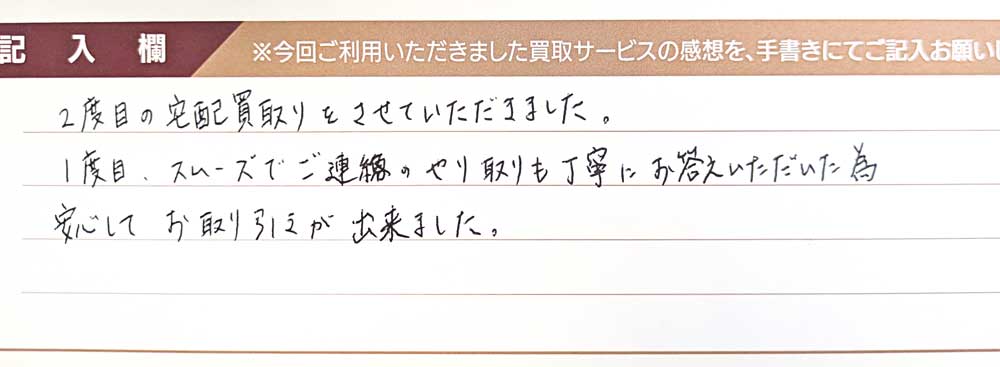 記入欄
※今回ご利用いただきました買取サービスの感想を、手書きにてご記入お願いし
2度目の宅配買取りをさせていただきました。
1度目、スムーズでご連絡のやり取りも丁寧にお答えいただいた為
安心してお取り引きが出来ました。